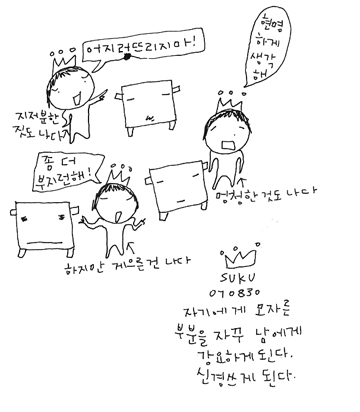 어지러뜨리지마!
지저분한
것도 나다
현명
하게
생각
해
좀 더
부지런해!
멍청한 것도 나다
하지만 게으른 건 나다
SUKU
070830
자기에게 모자른
부분을 자꾸 남에게
강요하게 된다.
신경쓰게 된다.